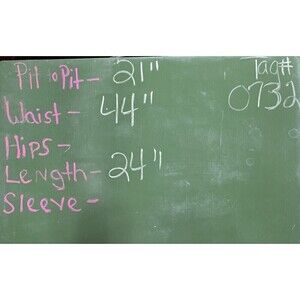 Pit 2 Pit - 21"
Tag#
Waist - 44"
0732
Hips -
Length - 24"
Sleeve -